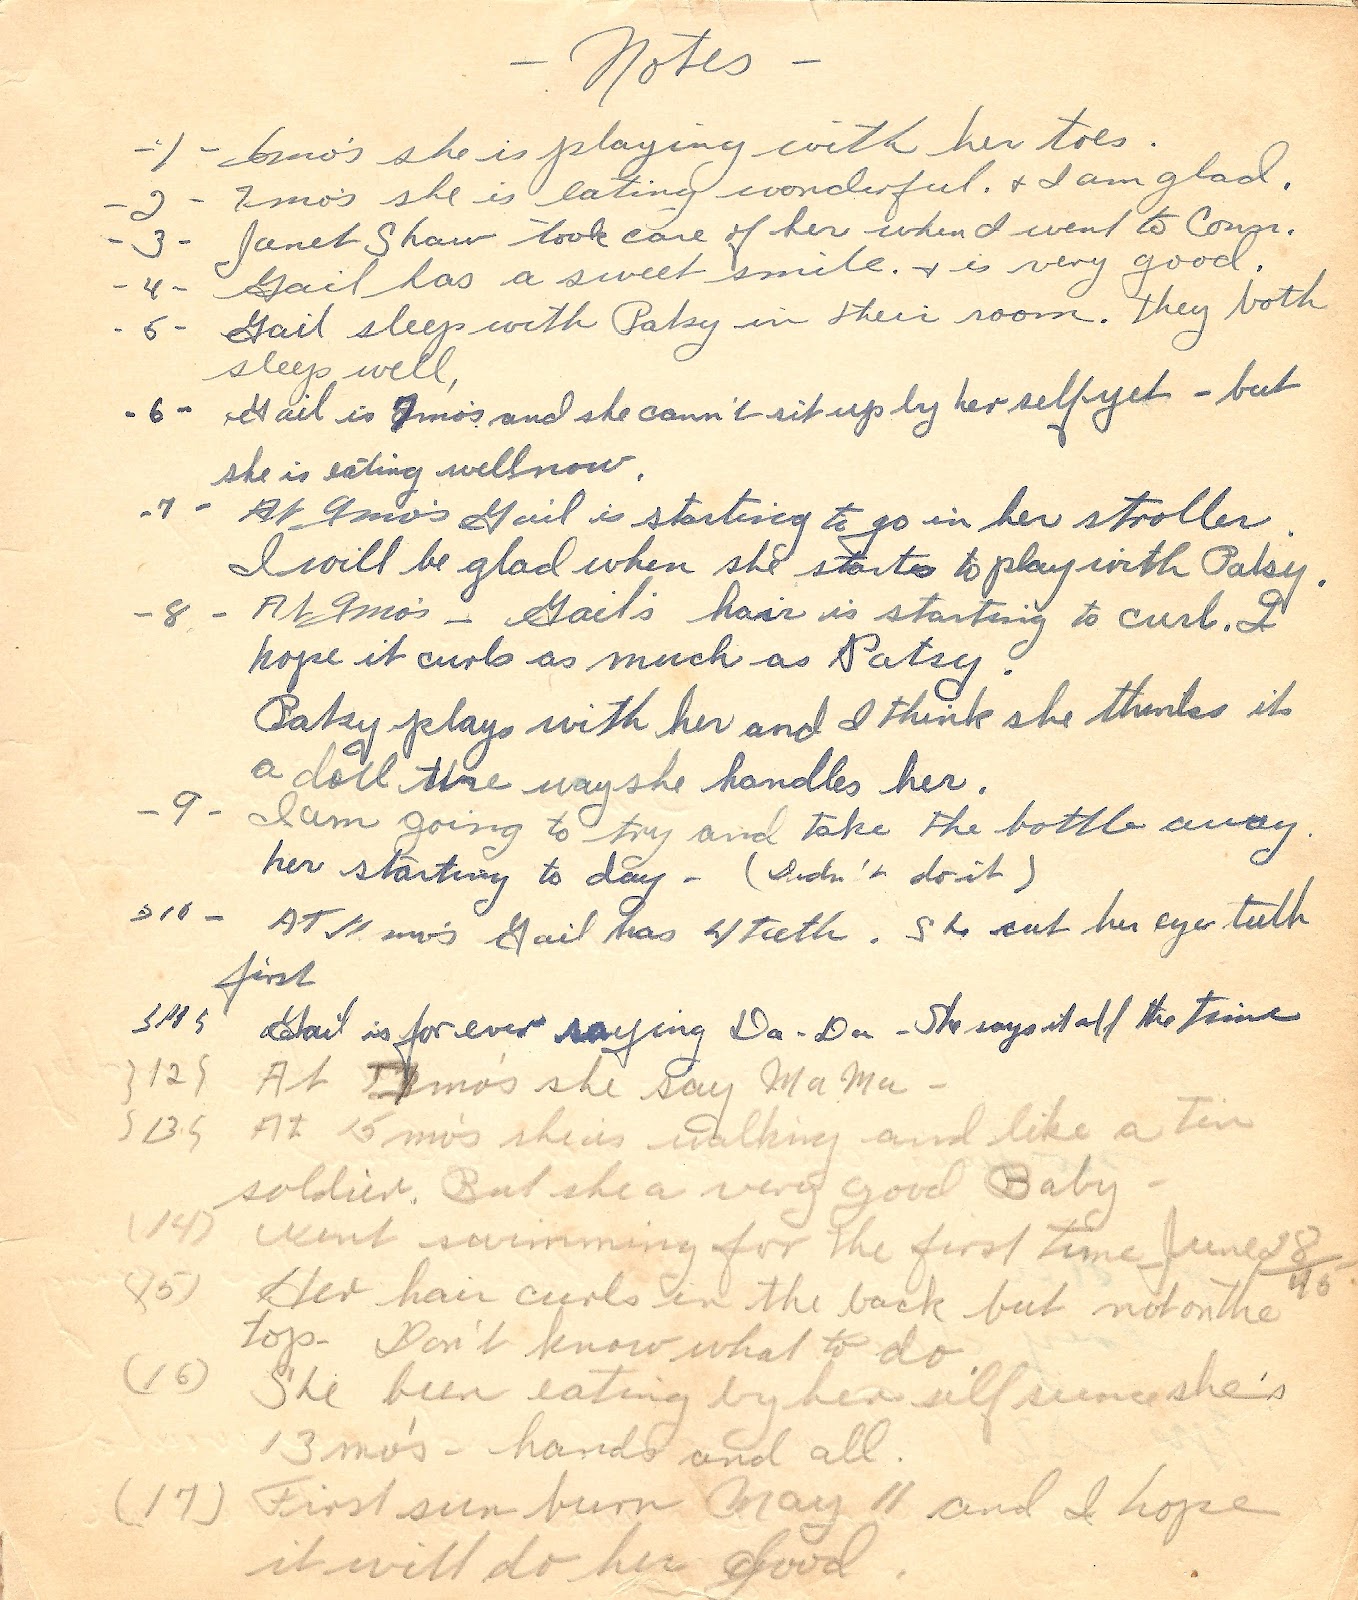 - Notes -
-1- 6mo's she is playing with her toes.
-2- 7mo's she is eating wonderful. + I am glad.
-3- Janet Shaw took care of her when I went to Conn.
-4- Gail has a sweet smile. + is very good.
-5- Gail sleep with Patsy in their room. They both
sleep well,
-6- Gail is 7mo's and she cann't sit up by her self yet - but
she is eating well now.
-7- At 9mo's Gail is starting to go in her stroller.
I will be glad when she starts to play with Patsy.
-8- At 9mo's - Gail's hair is starting to curl. I
hope it curls as much as Patsy.
Patsy plays with her and I think she thinks it
a doll the way she handles her.
-9- I am going to try and take the bottle away.
her starting to day - (Didn't do it)
10- AT 11 mo's Gail has 4 teeth. She cut her eye teeth
first
}11{ Gail is for ever saying Da-Da - She says it all the time
}12{ At mo's she say MaMa -
}13{ At 15 mo's she is walking and like a tin
soldier. But she a very good Baby -
(14) Went swimming for the first time June 28/45
(15) Her hair curls in the back but not on the
top- Don't know what to do.
(16) She been eating by her self since she's
13 mo's - hands and all.
(17) First sun burn May 11 and I hope
it will do her good.